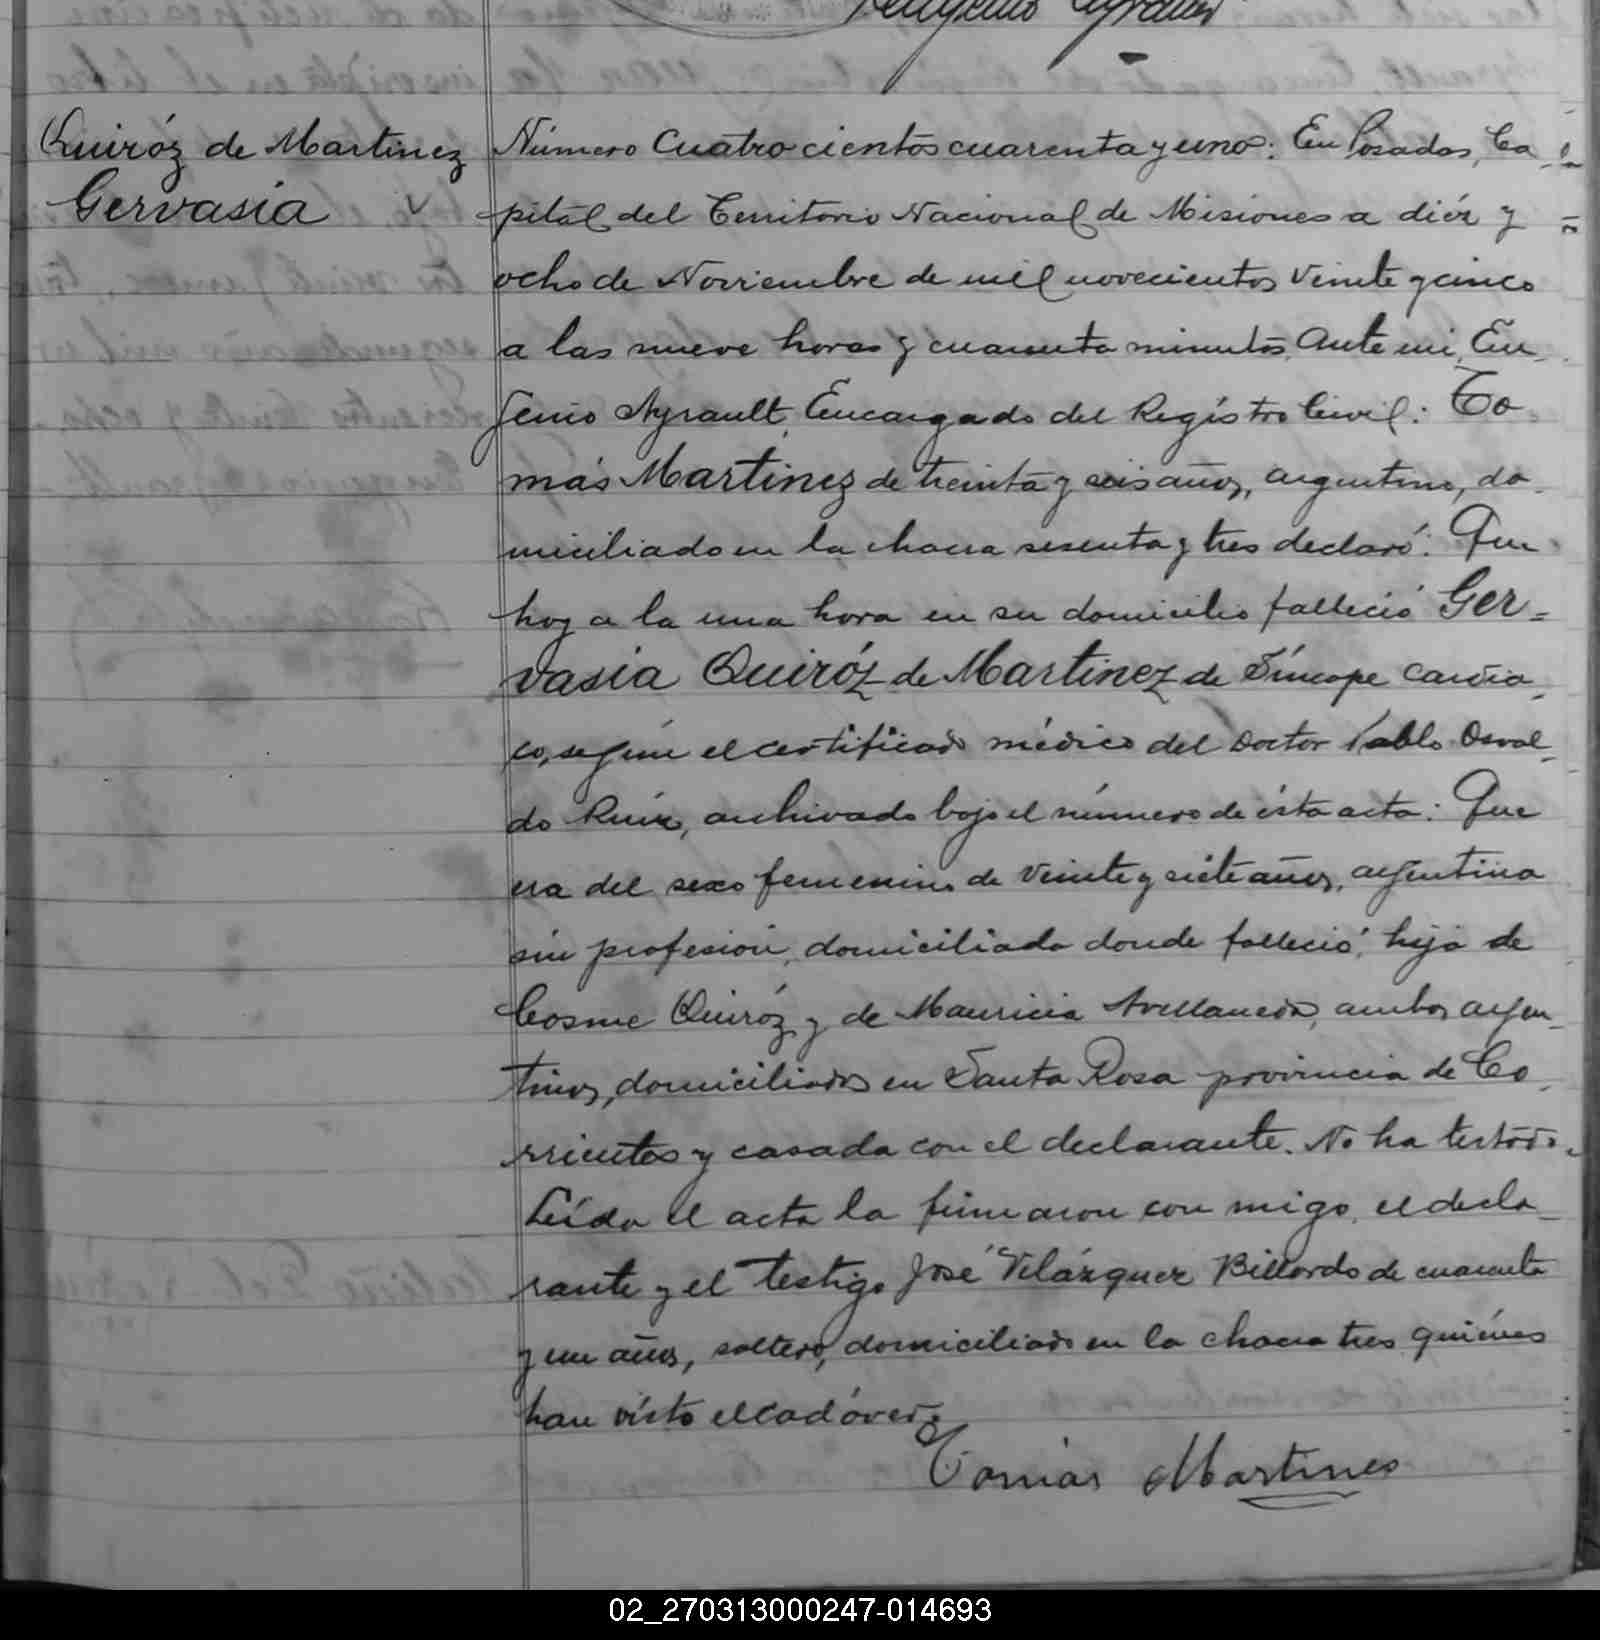 Eugenio Ayrault
Quiróz de Martinez
Gervasia
Número Cuatrocientos cuarenta y uno: En Posadas, Ca-
pital del Territorio Nacional de Misiones a diéz y
ocho de Noviembre de mil novecientos veinte y cinco
a las nueve horas y cuarenta minutos, Ante mi, Eu-
genio Ayrault, Encargado del Registro Civil: To-
más Martinez de treinta y seis años, argentino, do-
miciliado en la chacra sesenta y tres declaró: Que
hoy a la una hora en su domicilio falleció Ger=
vasia Quiróz de Martinez de Síncope cardia-
co, según el certificado médico del Doctor Pablo Osval-
do Ruíz, archivado bajo el número de ésta acta: Que
era del sexo femenino de veinte y siéte años, argentina
sin profesión, domiciliada donde falleció, hija de
Cosme Quiróz y de Mauricia Avellaneda, ambos argen-
tinos, domiciliados en Santa Rosa provincia de Co-
rrientes y casada con el declarante. No ha testado.
Leída el acta la firmaron con migo, el decla-
rante y el testigo José Velázquez Billordo de cuarenta
y un años, soltero, domiciliado en la chacra tres quiénes
han visto el cadáver.
Tomás Martines
02_270313000247-014693